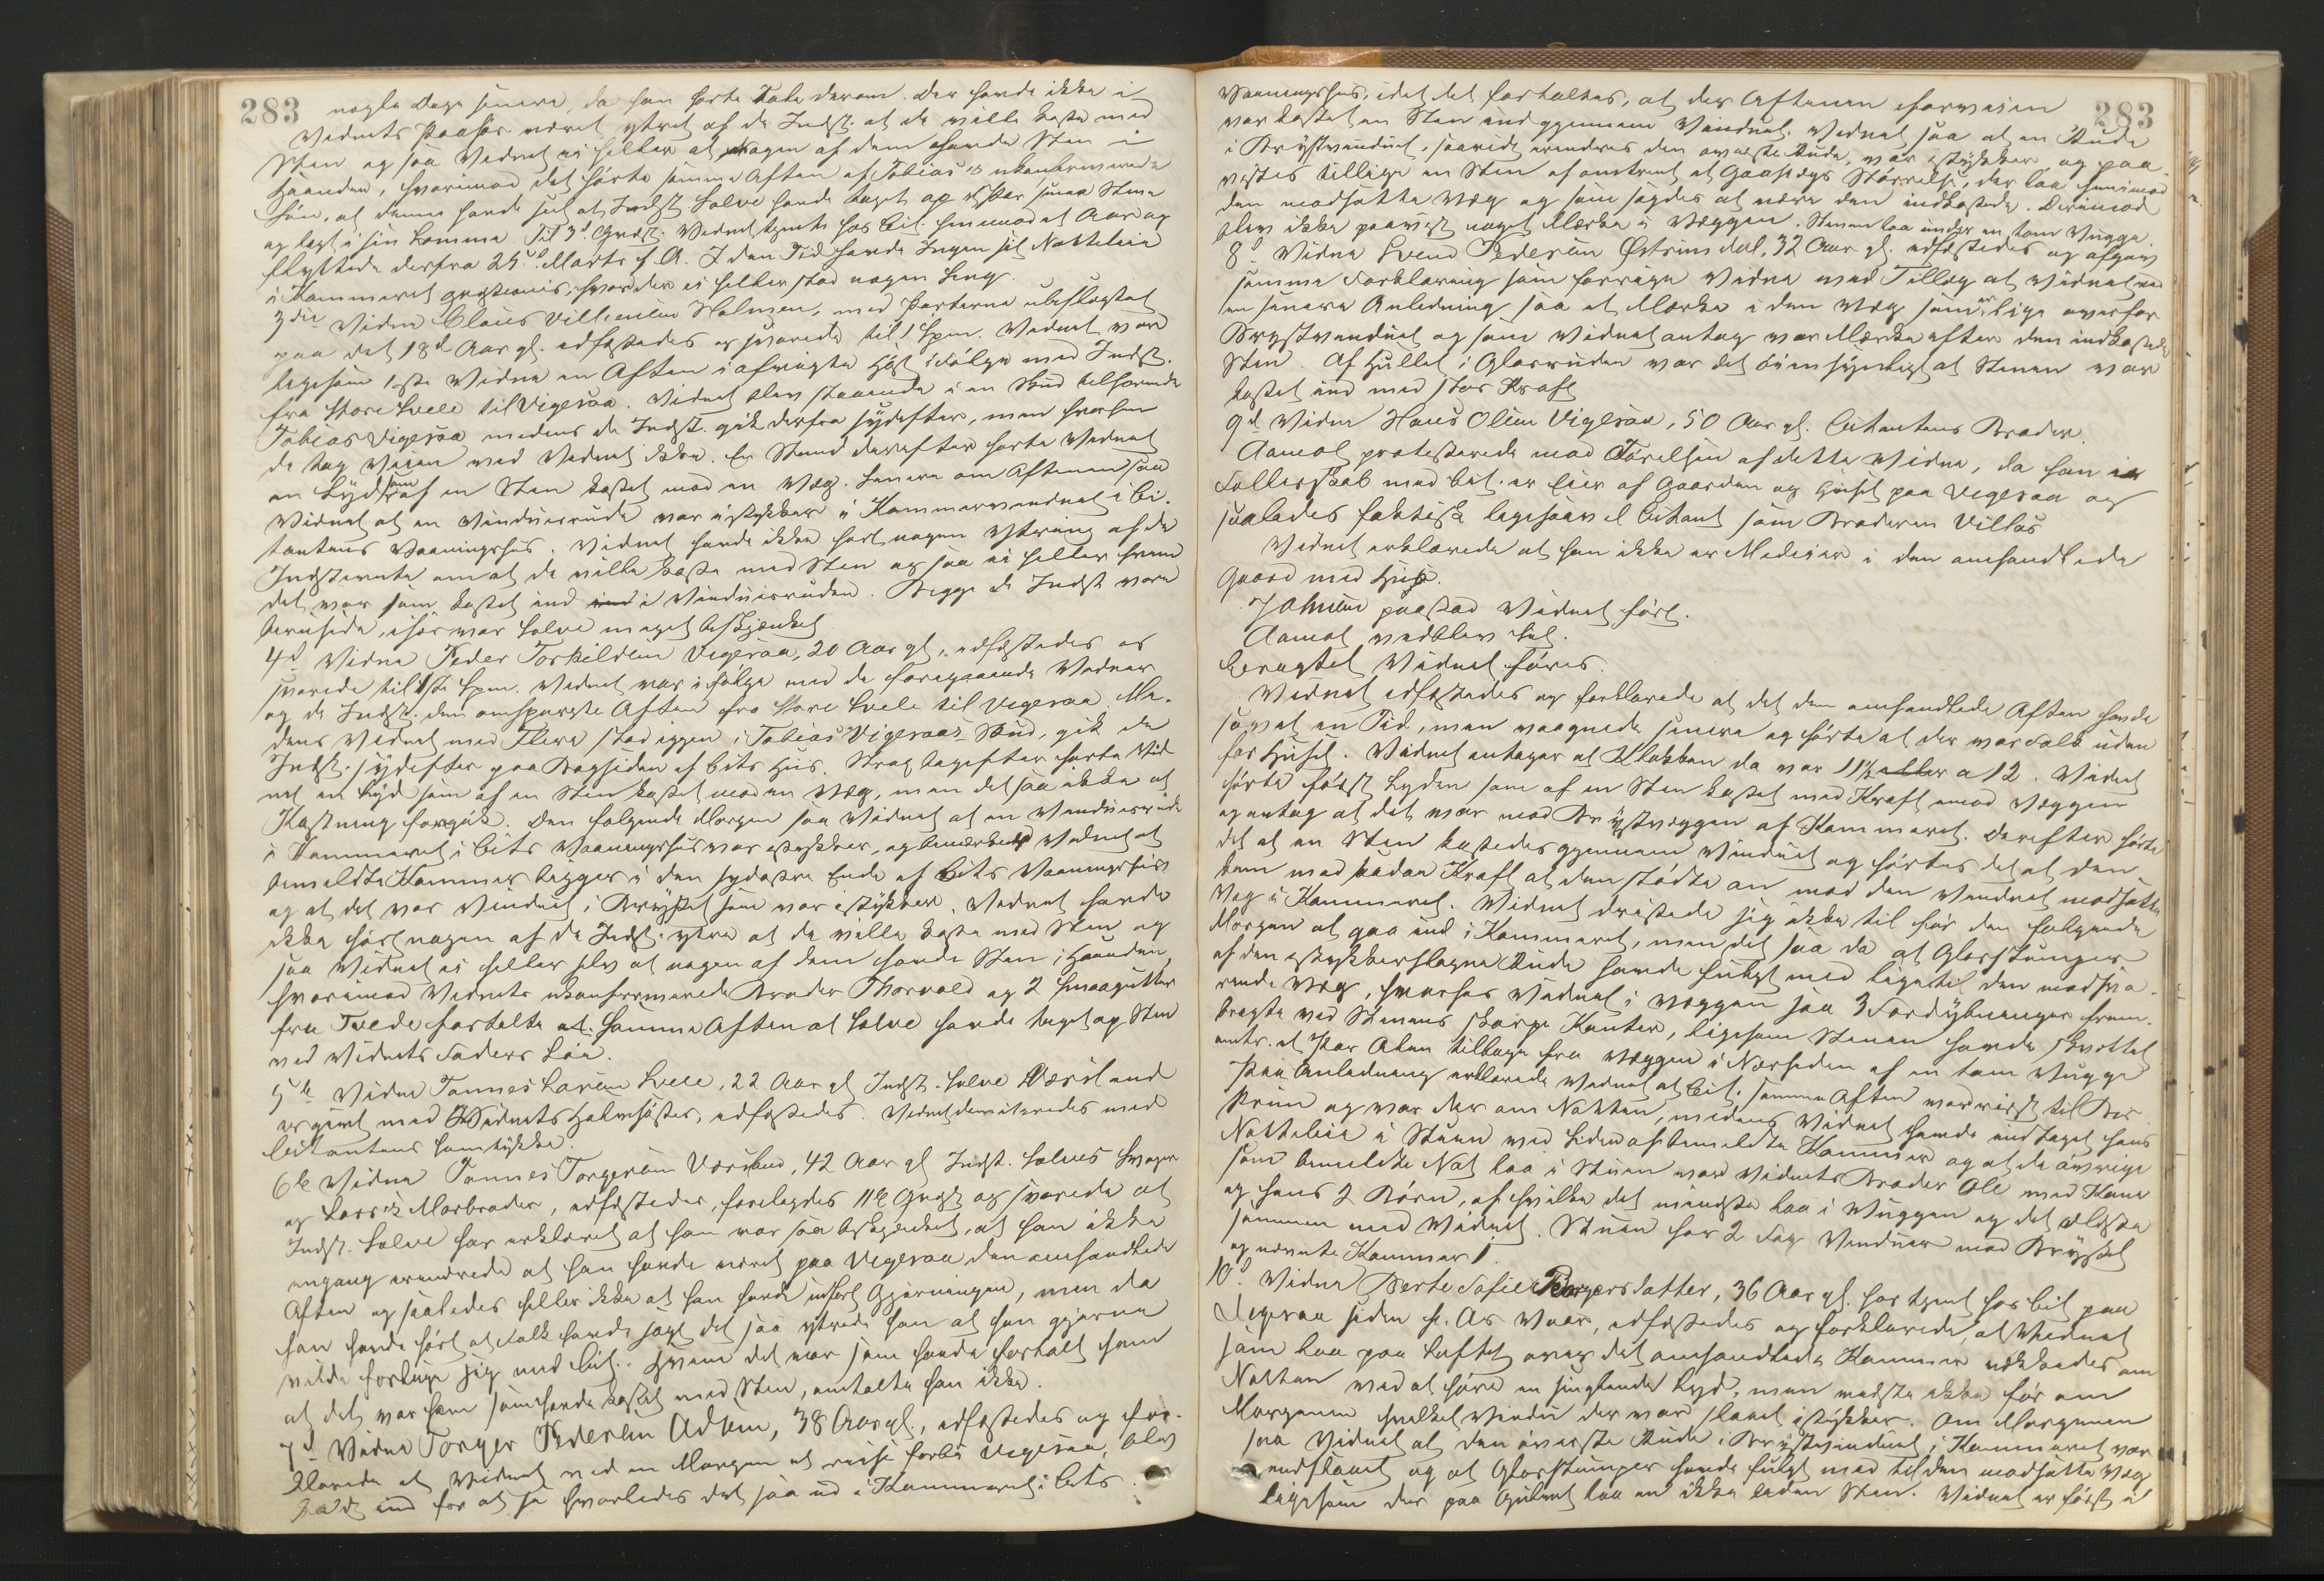 283
nogle Dage senere, da han hørte Tale derom. Der havde ikke i
Vidnets Paahør været ytret af de Indst. at de ville kaste med
Sten og saa Vidnet ei heller at nogen af dem havde Sten i
Haanden, hvorimod det hørte samme Aften af Tobias's ukonfirmerede
Søn, at denne havde seet at Indst. Salve havde taget op et Par smaa Stene
og lagt i sin Lomme. Til 3d. Grdst. Vidnet tjente hos Cit. henimod et Aar og
flyttede derfra 25d. Marts f. A. I den Tid havde Ingen sit Natteleie
i Kammeret qvæstionis, hvor der ei heller stod nogen Seng.
3die Vidne Claus Villumsen Holmen, med Parterne ubeslægtet
paa det 18d Aar gl. edfæstedes og svarede til 1 Spm. Vidnet var
ligesom 1ste Vidne en Aften i afvigte Høst ifølge med Indst.
fra Store Svele til Vigesaa. Vidnet blev staaende i en Bud tilhørende
Tobias Vigesaa medens de Indst. gik derfra sydefter, men hvorhen
de tog Veien ved Vidnet ikke. En Stund derefter hørte Vidnet
en Lyd som af en Sten kastet mod en Væg. Senere om Aftenen saa
Vidnet at en Vinduesrude var istykker i Kammervinduet i Ci-
tantens Vaaningshus. Vidnet havde ikke hørt nogen Ytring af de
Indstevnte om at de ville kaste med Sten og saa ei heller hvem
det var som kastet ind i Vinduesruden. Begge de Indst. vare
berusede, især var Salve meget beskjænket
4d Vidne Peder Torkildsen Vigesaa, 20 Aar gl., edfæstedes og
svarede til 1ste Spm. Vidnet var i følge med de foregaaende Vidner
og de Indst. den omspurgte Aften fra Store Svele til Vigesaa. Me-
dens Vidnet med Flere stod igjen i Tobias Vigesaas Bud, gik de
Indst. sydefter paa Bagsiden af Cits Hus. Strax bagefter hørte Vid
net en Lyd som af en Sten kastet mod en Væg, men det saa ikke at
Kastning foregik. Den følgende Morgen saa Vidnet at en Vinduesrude
i Kammeret i Cits Vaaningshus var istykker, og bemærkede Vidnet at
bemeldte Kammer ligger i den sydøstre Ende af Cits Vaaningshus
og at det var Vinduet i Brystet som var istykker. Vidnet havde
ikke hørt nogen af de Indst. ytre at de ville kaste med Sten og
saa Vidnet ei heller selv at nogen af dem havde Sten i Haanden,
hvorimod Vidnets ukonfirmerede Broder Thorvald og 2 Smaagutter
fra Tvede fortalte at samme Aften at Salve havde taget op Sten
ved Vidnets Faders Lòe.
5te Vidne Tønnes Larsen Svele, 22 Aar gl Indst. Salve Værsland
er givt med Vidnets Halvsøster, edfæstedes. Vidnet demitteredes med
Citantens Samtykke.
6te Vidne Tønnes Torgersen Værsland, 42 Aar gl Indst. Salves Svoger
og Lars's Morbroder, edfæstedes, forelagdes 11te Grgst. og svarede at
Indst. Salve har erklæret at han var saa beskjænket, at han ikke
engang erindrede at han havde været paa Vigesaa den omhandlede
Aften og saaledes heller ikke at han havde udført Gjerningen, men da
han havde hørt at Folk havde sagt det saa ytrede han at han gjerne
vilde forlige sig med Cit. Hvem det var som havde fortalt ham
at det var ham som havde kastet med Sten, omtalte han ikke.
7d Vidne Torger Pedersen Adsen, 38 Aar gl., edfæstedes og for-
klarede at Vidnet ved en Morgen at reise forbi Vigesaa, blev
kaldt ind for at se hvorledes det saa ud i Kammeret i Cits
283
Vaaningshus, idet det fortaltes, at der Aftenen forveien
var kastet en Sten ind gjennem Vinduet. Vidnet saa at en Rude
i Brystvinduet, saavidt erindres den øverste Rude, var istykker og paa-
vistes tillige en Sten af omtrent et Gaaseægs Størrelse, der laa henimod
den modsatte Væg og som sagdes at være den indkastede. Derimod
blev ikke paavist noget Mærke i Væggen. Stenen laa under en tom Vugge.
8d. Vidne Svend Pedersen Østrimdal, 32 Aar gl. edfæstedes og afgav
samme Forklaring som forrige Vidne med Tillæg at Vidnet ved
en senere Anledning saa et Mærke i den Væg som er lige overfor
Brystvinduet og som Vidnet antog var Mærke efter den indkastede
Sten. Af Hullet i Glasruden var det øiensynligt at Stenen var
kastet ind med stor Kraft
9d Vidne Hans Olsen Vigesaa, 50 Aar gl. Citantens Broder.
Aamot protesterede mod Førelsen af dette Vidne, da han i
Fællesskab med Cit. er Eier af Gaarden og Huset paa Vigesaa og
saaledes faktisk ligesaavel Citant som Broderen Villas
Vidnet erklærede at han ikke er Medeier i den omhandlede
Gaard med Hus.
Johnsen paastod Vidnet ført.
Aamot vedblev sit.
Eragtet Vidnet føres.
Vidnet edfæstedes og forklarede at det den omhandlede Aften havde
sovet en Tid, men vaagnede senere og hørte at der var Folk uden
for Huset. Vidnet antager at Klokken da var 11½ a 12. Vidnet
hørte først Lyden som af en Sten kastet med Kraft mod Væggen
og antog at det var mod Brystvæggen af Kammeret. Derefter hørte
det at en Sten kastedes gjennem Vinduet og hørtes det at den
kom med saadan Kraft at den stødte an mod den Vinduet modsatte
Væg i Kammeret. Vidnet dristede sig ikke til før den følgende
Morgen at gaa ind i Kammeret, men det saa da at Glasstumper
af den istykkerslagne Rude havde fulgt med ligetil den modsva-
rende Væg, hvorhos Vidnet i Væggen saa 3 Fordybninger frem-
bragte ved Stenens skarpe Kanter, ligesom Stenen havde skvettet
omtr. et Par Alen tilbage fra Væggen i Nærheden af en tom Vugge
Paa Anledning erklærede Vidnet at Cit. samme Aften var reist til
og var der om Natten, medens Vidnet havde indtaget hans
Natteleie i Stuen ved Siden af bemeldte Kammer og at de øvrige
som bemeldte Nat laa i Stuen var Vidnets Broder Ole med Kone
og hans 2 Børn, af hvilke det mindste laa i Vuggen og det ældste
sammen med Vidnet. Stuen har 2 Fag Vinduer mod Brystet
og nævnte Kammer 1.
10d. Vidne Berte Sofie Torgersdatter, 36 Aar gl. har tjent hos Cit paa
Vigesaa siden f. Ars Vaar, edfæstedes og forklarede, at Vidnet
som laa paa Loftet over det omhandlede Kammer vækkedes om
Natten ved at høre en singlende Lyd, men vidste ikke før om
Morgenen hvilket Vindu der var slaaet istykker. Om Morgenen
saa Vidnet at den øverste Rude i Brystvinduet i Kammeret var
indslaaet og at Glasstumper havde fulgt med til den modsatte Væg
ligesom der paa Gulvet laa en ikke liden Sten. Vidnet er født i